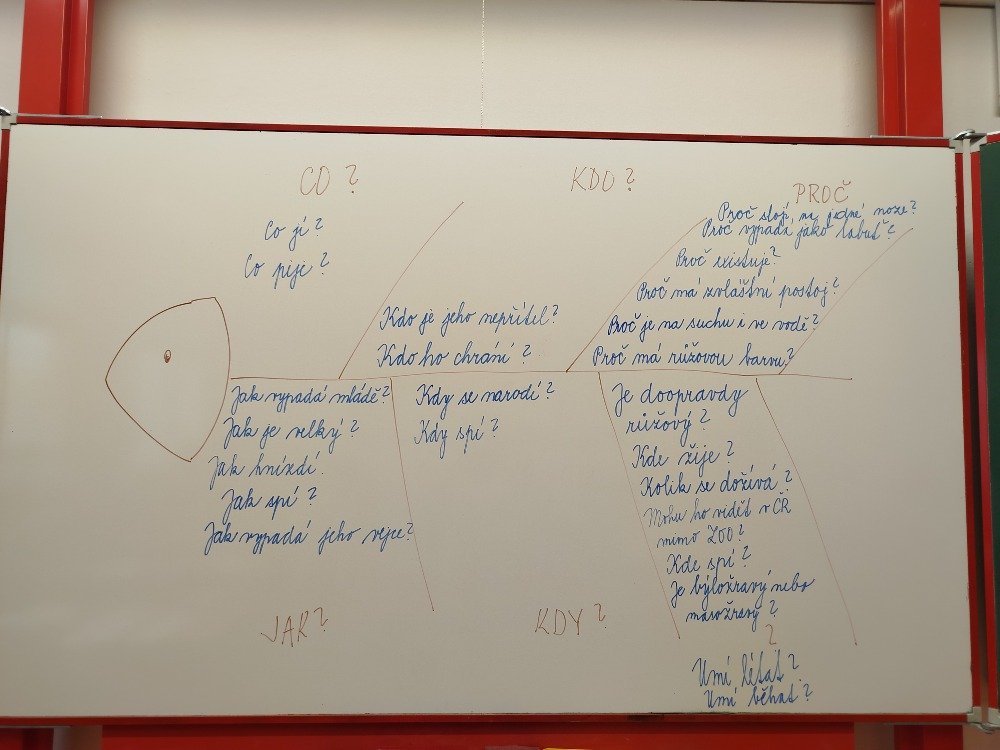 CO?
Co jí?
Co pije?
KDO?
Kdo je jeho nepřítel?
Kdo ho chrání?
PROČ
Proč stojí na jedné noze?
Proč vypadá jako labuť?
Proč existuje?
Proč má zvláštní postoj?
Proč je na suchu i ve vodě?
Proč má růžovou barvu?
Jak vypadá mládě?
Jak je velký?
Jak hnízdí.
Jak spí?
Jak vypadá jeho vejce?
JAK?
Kdy se narodí?
Kdy spí?
KDY?
Je doopravdy
růžový?
Kde žije?
Kolik se dožívá?
Mohu ho vidět v ČR
mimo ZOO?
Kde spí?
Je býložravý nebo
masožravý?
?
Umí létat?
Umí běhat?